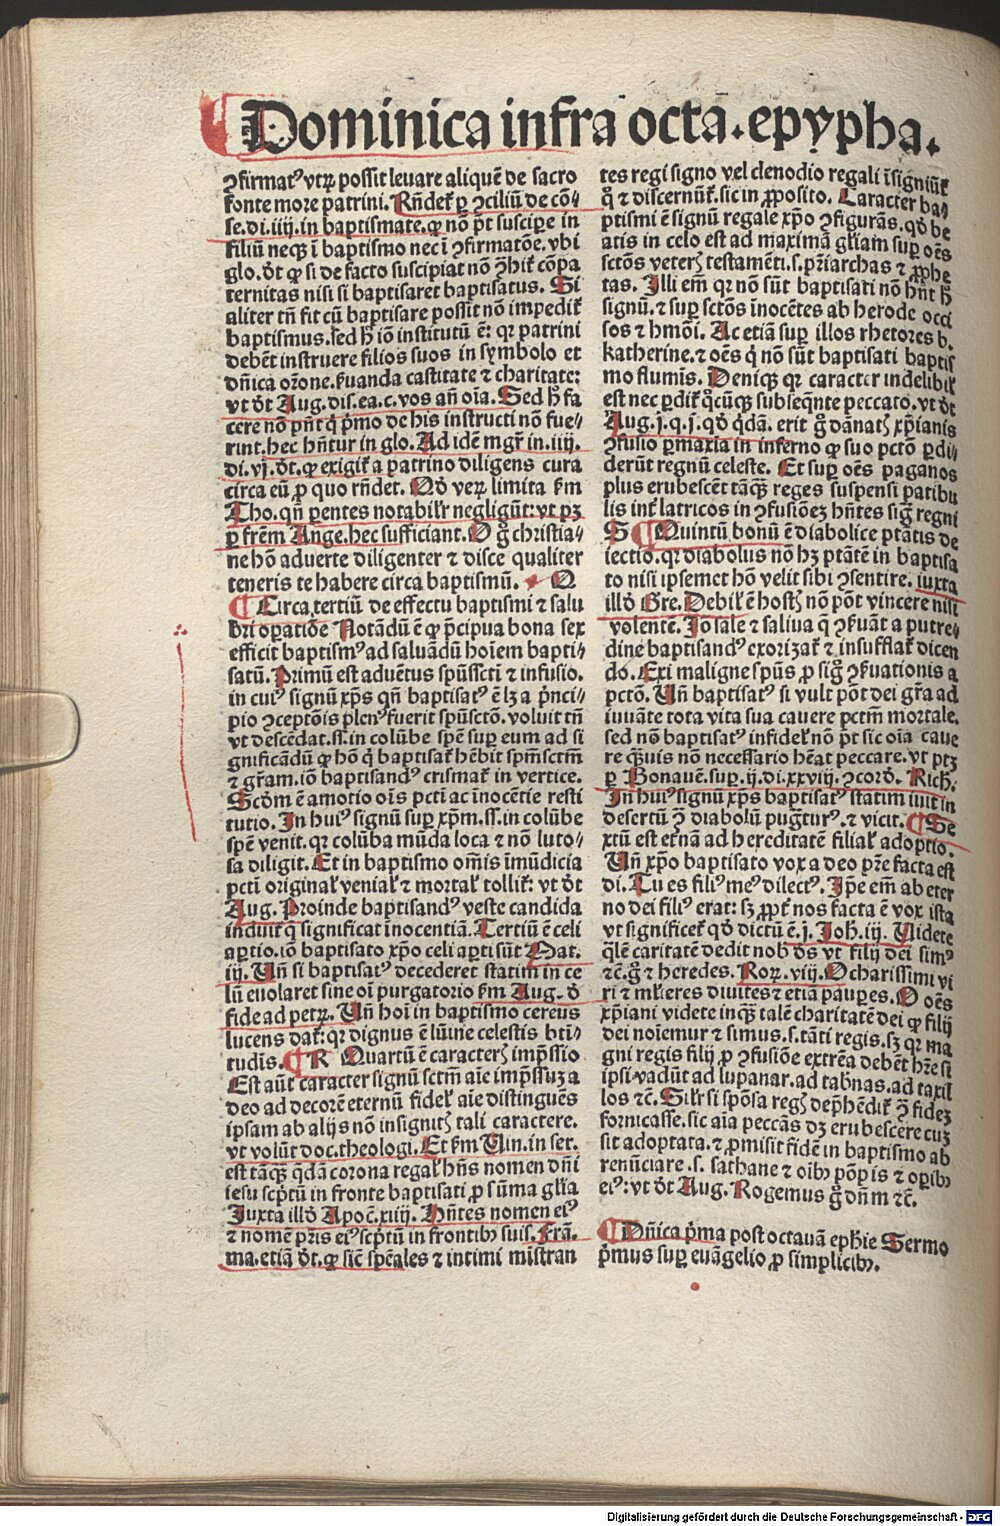 Dominica infra octa. epypha.
ꝯfirmatꝰ vtrꝝ possit leuare aliquē de sacro
fonte more patrini. Rn̄det̄ ꝑ ꝯciliū de cō-
se. di. iiij. in baptismate. ꝙ nō pōt suscipe in
filiū neqꝫ ī baptismo nec ī ꝯfirmatōe. vbi
glo. dt ꝙ si de facto suscipiat nō ꝓhiƀ cōpa
ternitas nisi si baptisaret baptisatus. Si
aliter tn̄ fit cū baptisare possit nō impedit̄
baptismus. sed hͦ iō institutū ē: qꝛ patrini
debēt instruere filios suos in symbolo et
dn̄ica or̄one. ẜuanda castitate ⁊ charitate:
vt dt Aug. dis. ea. c. vos an̄ oīa. Sed hͦ fa
cere nō pn̄t q̇ pͥmo de his instructi nō fue-
rint. hec hn̄tur in glo. Ad idē mgr̄ in. iiij.
di. vj. dt. ꝙ exigit̄ a patrino diligens cura
circa eū ꝓ quo rn̄det. Qd verꝝ limita ẜm
Tho. qn̄ parentes notabilr̄ negligūt: vt pꝫ
ꝑ frēm Ange. hec sufficiant. O gͦ christia-
ne hō aduerte diligenter ⁊ disce qualiter
teneris te habere circa baptismū. Q
¶ Circa tertiū de effectu baptismi ⁊ salu
bri oꝑatiōe Notādū ē ꝙ pͥncipua bona sex
efficit baptismꝰ ad saluādū hoīem bapti-
satū. Primū est aduētus spūssctī ⁊ infusio.
in cuiꝰ signū xp̄s qn̄ baptisatꝰ ē lꝫ a pͥnci-
pio ꝯceptōis plenꝰ fuerit spūsctō. voluit tn̄
vt descēdat. ss. in colūbe spē suꝑ eum ad si
gnificādū ꝙ hō q̇ baptisat̄ hēbit spm̄sctm̄
⁊ gr̄am. iō baptisandꝰ crismat̄ in vertice.
Scdm ē amotio oīs pctī ac īnocētie resti
tutio. In huiꝰ signū suꝑ xp̄m. ss. in colūbe
spē venit. qꝛ colūba mūda loca ⁊ nō luto-
sa diligit. Et in baptismo om̄is īmūdicia
pctī original̄ venial̄ ⁊ mortal̄ tollit̄: vt dt
Aug. Proinde baptisandꝰ veste candida
induit̄ q̄ significat inocentiā. Tertiū ē celi
aꝑtio. iō baptisato xp̄o celi aꝑti sūt Mat.
iij. Un̄ si baptisatꝰ decederet statim in ce
lū euolaret sine oī purgatorio ẜm Aug. d
fide ad petrꝝ. Un̄ hoī in baptismo cereus
lucens dat̄: qꝛ dignus ē lūine celestis bti-
tudīs. ¶ R Quartū ē caracterꝭ imp̄ssio
Est aūt caracter signū sctm̄ aīe imp̄ssuꝫ a
deo ad decorē eternū fidel̄ aīe distinguēs
ipsam ab alijs nō insignitꝭ tali caractere.
vt volūt doc. theologi. Et ẜm Uin. in ser.
est tāqꝫ q̄dā corona regal̄ hn̄s nomen dn̄i
iesu scp̄tū in fronte baptisati ꝓ sūma glīa
Juxta illd Apoc̄. xiiij. Hn̄tes nomen eiꝰ
⁊ nomē pr̄is eiꝰ scp̄tū in frontibꝫ suis. Frā.
ma. etiā dt. ꝙ sic̄ spēales ⁊ intimi mīstran
tes regi signo vel clenodio regali īsigniūt̄
q̊ ⁊ discernūt̄. sic in ꝓposito. Caracter ba-
ptismi ē signū regale xp̄o ꝯfigurās. qd be
atis in celo est ad maximā gl̄iam suꝑ oēs
sctōs veterꝭ testamēti. s. pr̄iarchas ⁊ ꝓphe
tas. Illi em̄ qꝛ nō sūt baptisati nō hn̄t hͦ
signū. ⁊ suꝑ sctōs īnocētes ab herode occi
sos ⁊ hmōi. Ac etiā suꝑ illos rhetores b.
katherine. ⁊ oēs q̇ nō sūt baptisati baptis
mo flumīs. Deniqꝫ qꝛ caracter indelibil̄
est nec ꝑdit̄ q̊cūqꝫ subseqn̄te peccato. vt dt
Aug. j. q. j. qd q̇dā. erit gͦ dānatꝭ xp̄ianis
ꝯfusio ꝑmaxīa in inferno ꝙ suo pctō ꝑdi-
derūt regnū celeste. Et suꝑ oēs paganos
plus erubescēt tāqꝫ reges suspensi patibu
lis int̄ latricos in ꝯfusiōeꝫ hn̄tes sigͣ regni
S ¶ Quintū bonū ē diabolice ptātis de
iectio. qꝛ diabolus nō hꝫ ptātē in baptisa
to nisi ipsemet hō velit sibi ꝯsentire. iuxta
illd Gre. Debil̄ ē hostꝭ nō pōt vincere nisi
volentē. Jō sale ⁊ saliua q̄ ꝯẜuāt a putre-
dine baptisandꝰ exorizat̄ ⁊ insufflat̄ dicen
do. Exi maligne spūs ꝓ sigͦ ꝯẜuationis a
pctō. Un̄ baptisatꝰ si vult pōt dei gr̄a ad
iuuāte tota vita sua cauere pctm̄ mortale.
sed nō baptisatꝰ infidel̄ nō pōt sic oīa caue
re qͣuis nō necessario hēat peccare. vt ptꝫ
ꝑ Bonauē. suꝑ. ij. di. xxviij. ꝯcord. Rich.
In huiꝰ signū xp̄s baptisatꝰ statim iuit in
desertū ꝯͣ diabolū pugͣturꝰ. ⁊ vicit. ¶ Se
xtū est etn̄a ad hereditatē filial̄ adoptio.
Un̄ xp̄o baptisato vox a deo pr̄e facta est
di. Tu es filiꝰ meꝰ dilectꝰ. Ip̄e em̄ ab eter
no dei filiꝰ erat: sꝫ ꝓpt̄ nos facta ē vox ista
vt significet̄ qd dictū ē. j. Joh̄. iij. Uidete
qlē caritatē dedit nob̄ ds vt filij dei simꝰ
⁊c̄. gͦ ⁊ heredes. Roꝝ. viij. O charissimi vi
ri ⁊ ml̄ieres diuites ⁊ etiā pauꝑes. O oēs
xp̄iani videte inqͣꝫ talē charitatē dei ꝙ filij
dei noīemur ⁊ simus. s. tāti regis. sꝫ qꝛ ma
gni regis filij ꝓ ꝯfusiōe extrēa debēt hr̄e si
ipsi vadūt ad lupanar. ad tab̄nas. ad taxil
los ⁊c̄. Silr̄ si spōsa regꝭ dep̄hēdit̄ ꝯͣ fideꝫ
fornicasse. sic aīa peccās dꝫ erubescere cuꝫ
sit adoptata. ⁊ ꝓmisit fidē in baptismo ab
renūciare. s. sathane ⁊ oībꝫ pōpis ⁊ oꝑibꝫ
eiꝰ: vt dt Aug. Rogemus gͦ dn̄m ⁊c̄.
¶ Dn̄ica pͥma post octauā eph̄ie Sermo
pͥmus suꝑ euāgelio ꝓ simplicibꝫ.
Digitalisierung gefördert durch die Deutsche Forschungsgemeinschaft - DFG